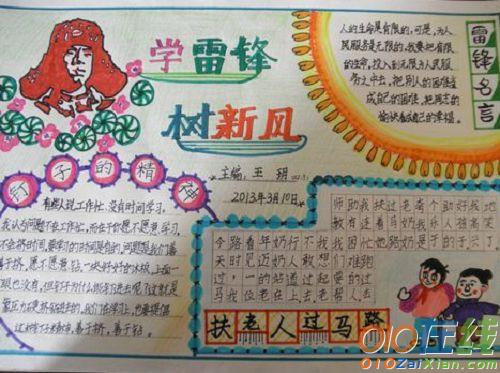 学雷锋
树新风
主编:王玥
2013年3月10日
人的生命是有限的,可是,为人
民服务是无限的,我要把有限
的生命,投入到无限为人民服
务之中去,把别人的困难当
成自己的困难,把同志的
愉快看成自己的幸福。
雷锋名言
钉子的精神
有些人说工作忙、没有时间学习。
我认为问题不在工作忙,而在于你愿不愿意学习,
会不会挤时间。要学习的时间是有的,问题是我们善
不善于挤,愿不愿意钻。一块好好的木板,上面一
个眼也没有,但钉子为什么能钉进去呢?这就是
靠压力硬挤硬钻进去的。我们在学习上,也要提倡
这种钉子精神,善于挤、善于钻。
今天过马
路时,我
看见一位
年迈的老
奶奶站在
行人道上
不敢过去
我想起老
师教我们要帮
助有
扶老人过马路
010在线
010ZaiXian.com